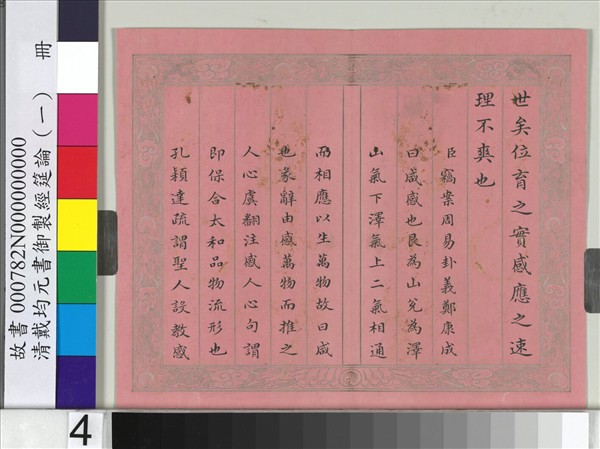 世矣位育之實感應之速
理不爽也
臣竊案周易卦義鄭康成
曰咸感也艮為山兌為澤
山氣下澤氣上二氣相通
而相應以生萬物故曰咸
也彖辭由感萬物而推之
人心虞翻注感人心句謂
即保合太和品物流形也
孔穎達疏謂聖人設教感
故書 000782N000000000
清戴均元書御製經筵論（一） 冊
4